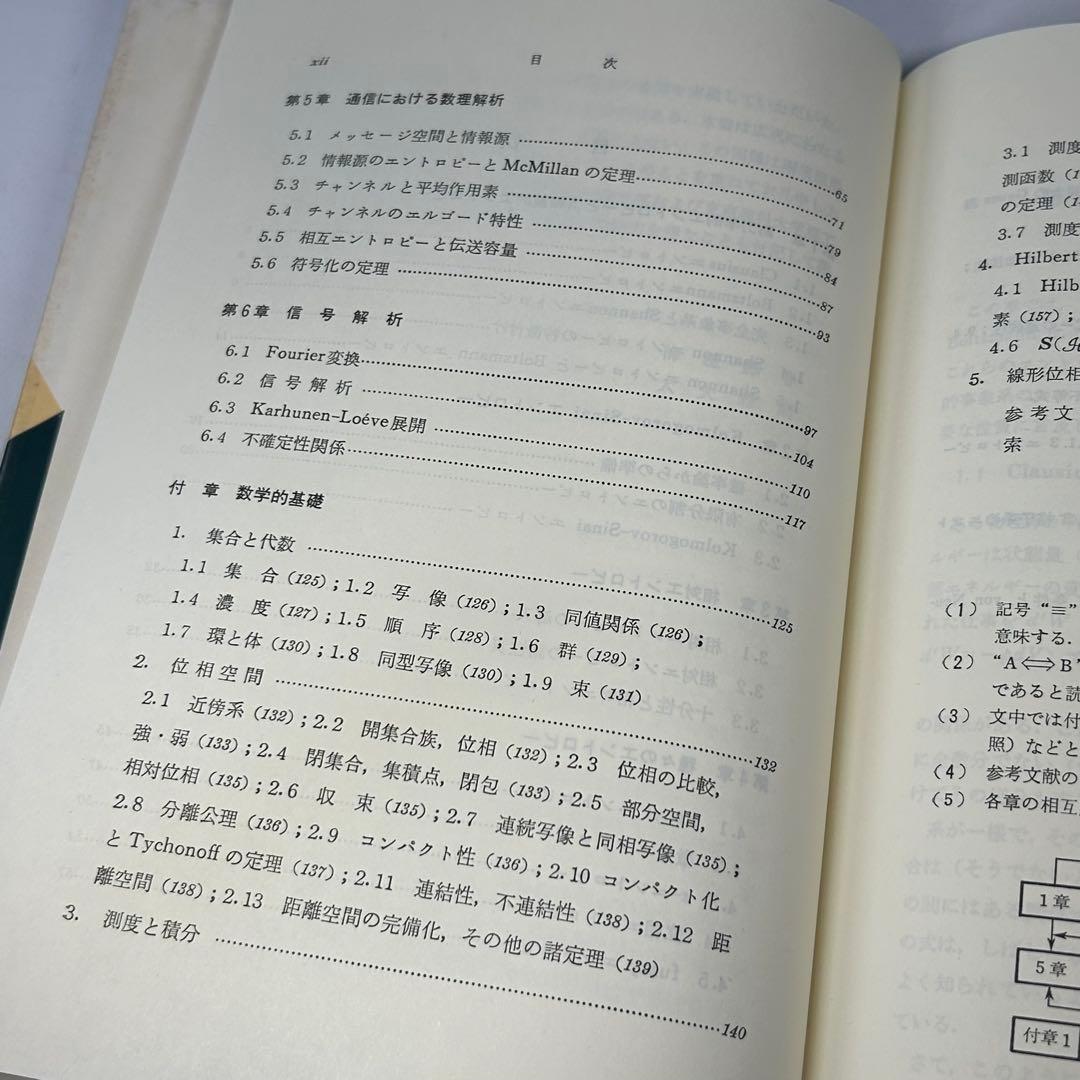 xii 目次
第5章 通信における数理解析
5.1 メッセージ空間と情報源 65
5.2 情報源のエントロピーとMcMillanの定理 71
5.3 チャンネルと平均作用素 79
5.4 チャンネルのエルゴード特性 84
5.5 相互エントロピーと伝送容量 87
5.6 符号化の定理 93
第6章 信号解析
6.1 Fourier変換 97
6.2 信号解析 104
6.3 Karhunen–Loéve展開 110
6.4 不確定性関係 117
付章 数学的基礎
1. 集合と代数 125
1.1 集合(125);1.2 写像(126);1.3 同値関係(126);
1.4 濃度(127);1.5 順序(128);1.6 群(129);
1.7 環と体(130);1.8 同型写像(130);1.9 束(131)
2. 位相空間 132
2.1 近傍系(132);2.2 開集合族,位相(132);2.3 位相の比較,
強・弱(133);2.4 閉集合,集積点,閉包(133);2.5 部分空間,
相対位相(135);2.6 収束(135);2.7 連続写像と同相写像(135);
2.8 分離公理(136);2.9 コンパクト性(136);2.10 コンパクト化
とTychonoffの定理(137);2.11 連結性,不連結性(138);2.12 距
離空間(138);2.13 距離空間の完備化,その他の諸定理(139)
3. 測度と積分 140
3.1 測度
測函数(
の定理(
3.7 測度
4. Hilbert
4.1 Hilb
素(157);
4.6 S(
5. 線形位相
参考文
索
(1) 記号“≡”
意味する.
(2) “A⟺B”
であると読
(3) 文中では付
照)などと
(4) 参考文献の
(5) 各章の相互
1章
5章
付章1